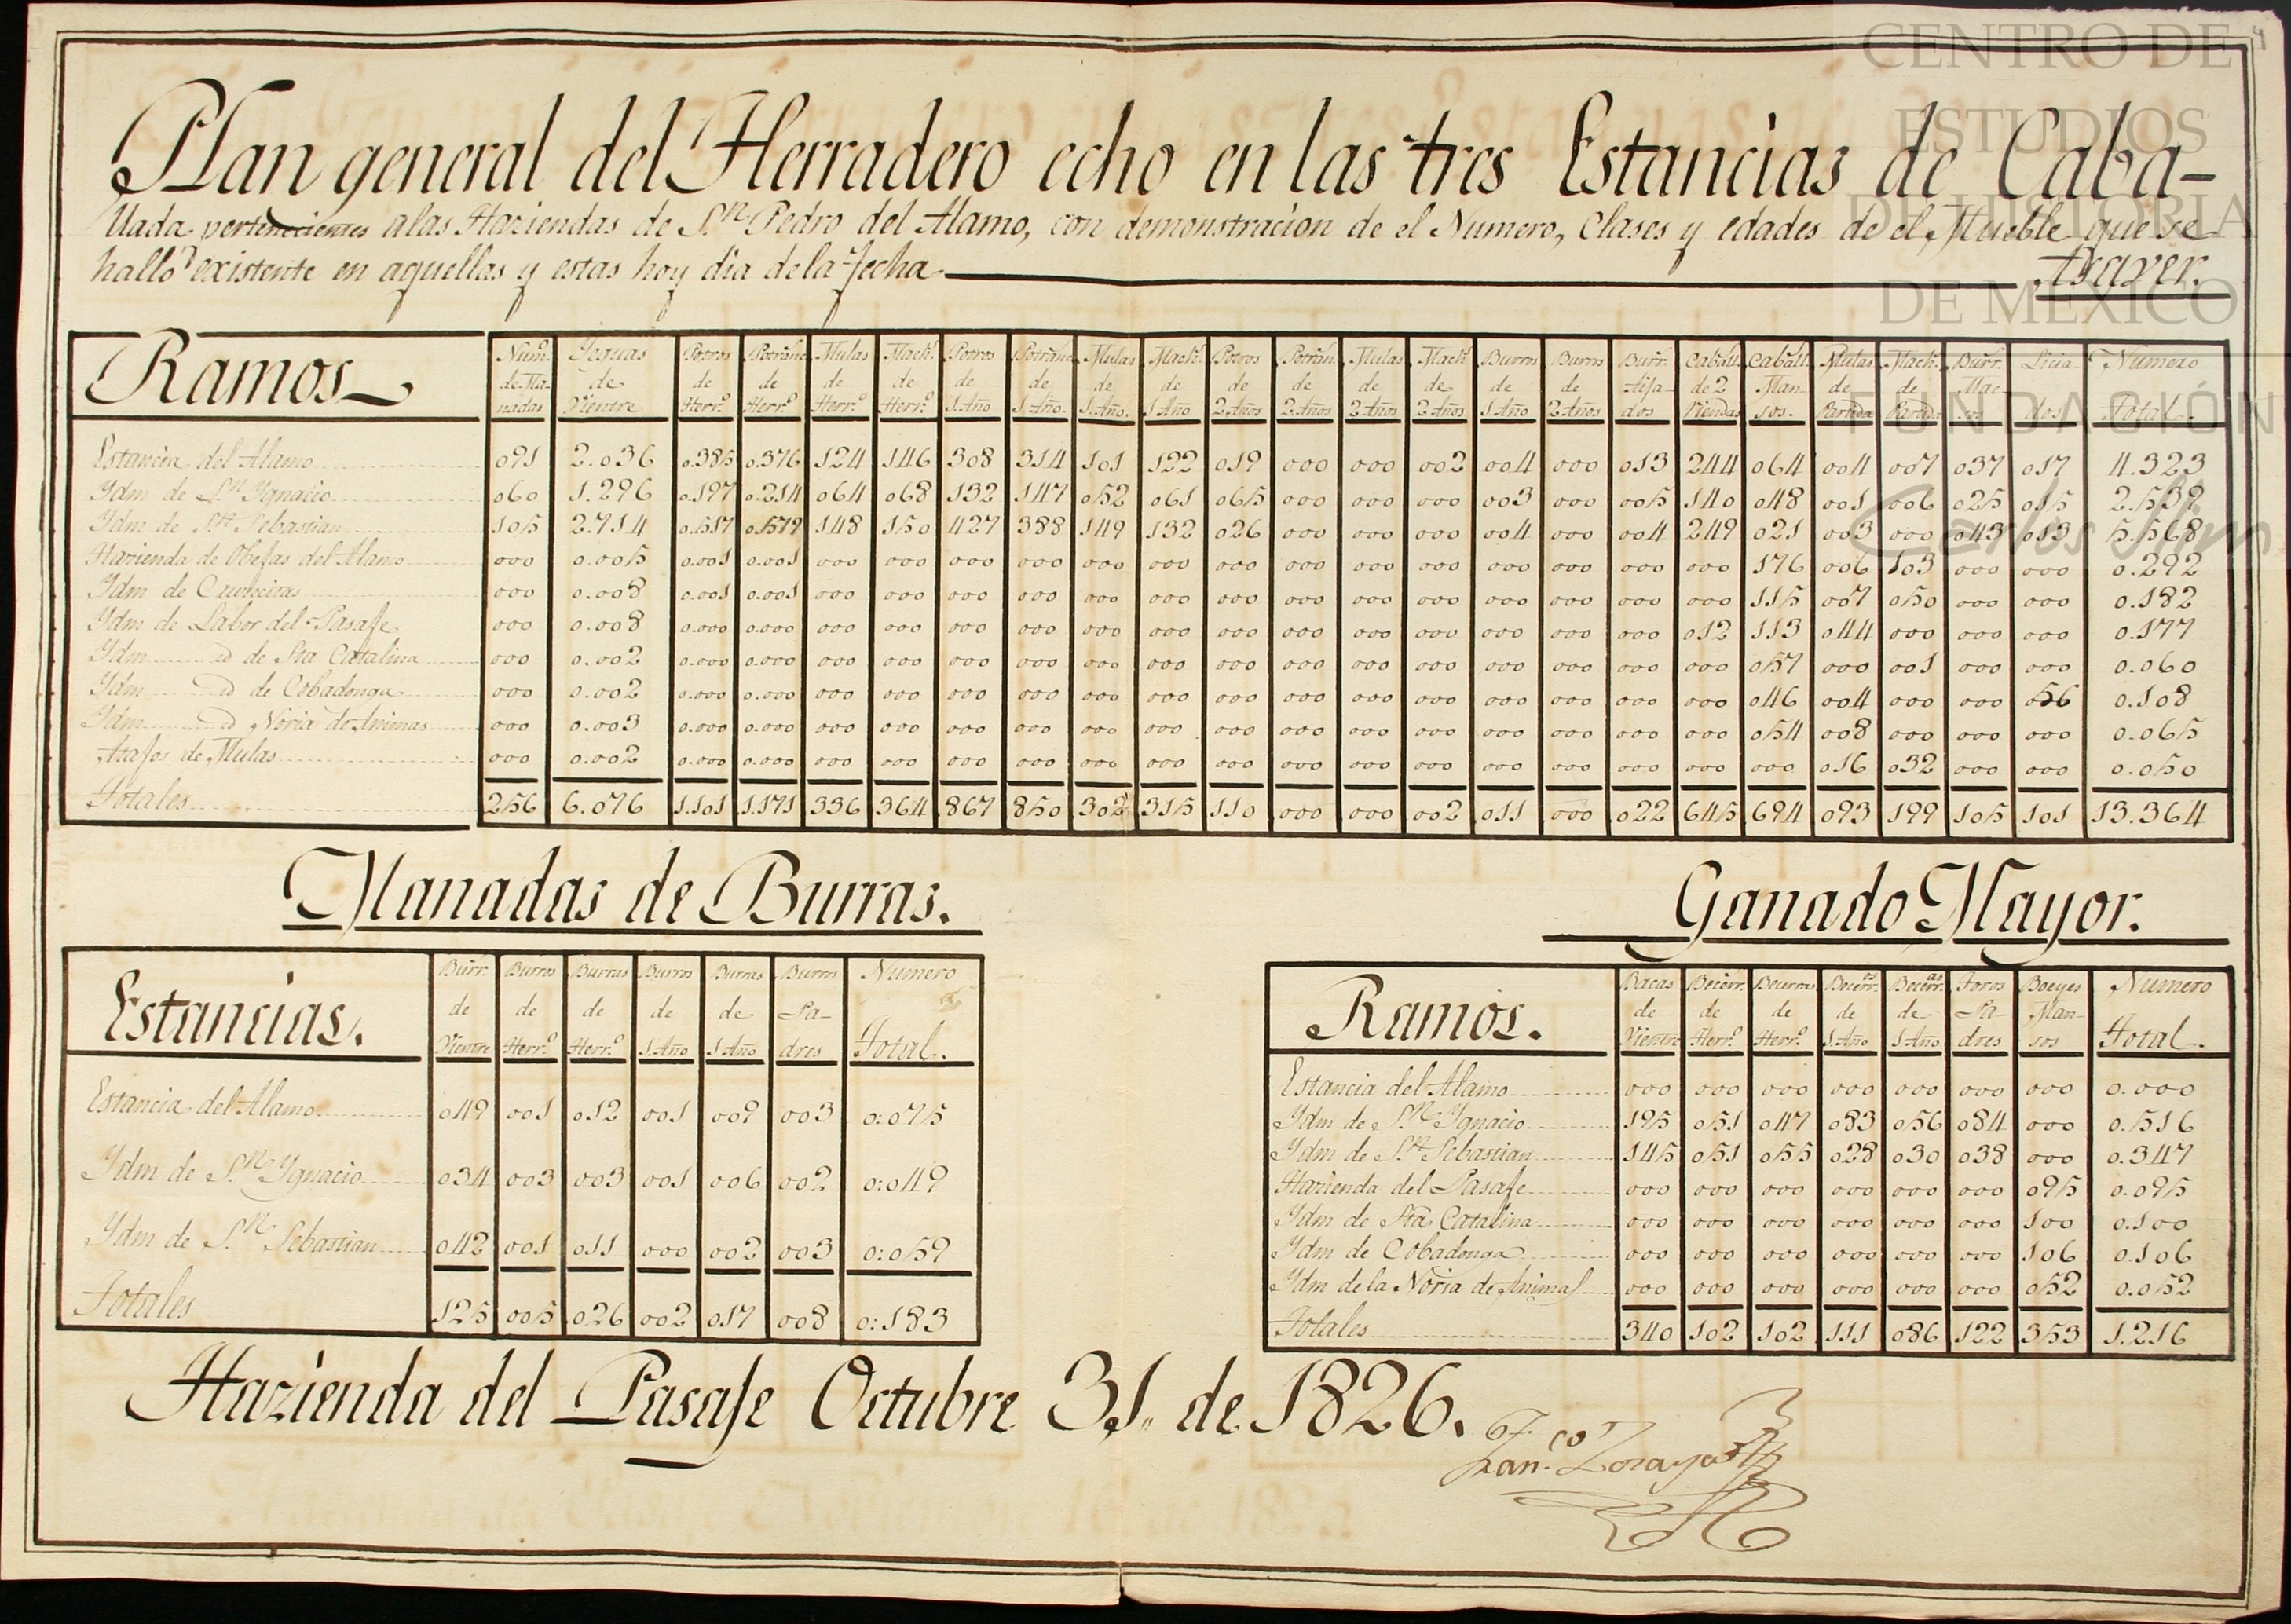 CENTRO DE
ESTUDIOS
DE HISTORIA
DE MEXICO
FUNDACIÓN
Carlos Slim
Plan general del Herradero echo en las tres Estancias de Caba-
llada pertenecientes a las Haziendas de S.n Pedro del Alamo, con demonstracion de el Numero, Clases y edades de el Mueble que se
halló existente en aquellas y estas hoy dia de la fecha
Asaver.
Ramos Num.o de Ma- nadas Yeguas de Vientre Potros de Herr.o Potranc de Herr.o Mulas de Herr.o Mach.s de Herr.o Potros de 1 Año Potranc de 1 Año. Mulas de 1 Año. Mach.s de 1 Año Potros de 2 Años Potran. de 2 Años Mulas de 2 Años Mach.s de 2 Años Burros de 1 Año Burros de 2 Años Burr. Aija- dos Caball. de 2 Riendas Caball. Man- sos. Mulas de Partida Mach.s de Partida Burr. Licia- dos Numero Total.
Estancia del Alamo 091 2.036 0.385 0.376 124 146 308 314 101 122 019 000 000 002 004 000 013 244 064 004 007 037 017 4.323
Ydm de S.n Ygnacio 060 1.296 0.197 0.214 064 068 132 147 052 061 065 000 000 000 003 000 005 140 048 001 006 025 015 2.539
Ydm de S.n Sebastian 105 2.714 0.517 0.579 148 150 427 388 149 132 026 000 000 000 004 000 004 249 021 003 000 043 013 5.568
Hazienda de Obejas del Alamo 000 0.005 0.001 0.001 000 000 000 000 000 000 000 000 000 000 000 000 000 000 176 006 103 000 000 0.292
Ydm de 000 0.008 0.001 0.001 000 000 000 000 000 000 000 000 000 000 000 000 000 000 115 007 050 000 000 0.182
Ydm de Labor del Pasaje 000 0.008 0.000 0.000 000 000 000 000 000 000 000 000 000 000 000 000 000 012 113 044 000 000 000 0.177
Ydm id de Sta Catalina 000 0.002 0.000 0.000 000 000 000 000 000 000 000 000 000 000 000 000 000 000 057 000 001 000 000 0.060
Ydm id de Cobadonga 000 0.002 0.000 0.000 000 000 000 000 000 000 000 000 000 000 000 000 000 000 046 004 000 000 056 0.108
Ydm id Noria de Animas 000 0.003 0.000 0.000 000 000 000 000 000 000 000 000 000 000 000 000 000 000 054 008 000 000 000 0.065
Atajos de Mulas 000 0.002 0.000 0.000 000 000 000 000 000 000 000 000 000 000 000 000 000 000 000 016 032 000 000 0.050
Totales 256 6.076 1.101 1.171 336 364 867 850 302 315 110 000 000 002 011 000 022 645 694 093 199 105 101 13.364
Manadas de Burras.
Estancias. Burr. de Vientre Burros de Herr.o Burras de Herr.o Burros de 1 Año Burras de 1 Año Burros Pa- dres Numero Total.
Estancia del Alamo 049 001 012 001 009 003 0:075
Ydm de S.n Ygnacio 034 003 003 001 006 002 0:049
Ydm de S.n Sebastian 042 001 011 000 002 003 0:059
Totales 125 005 026 002 017 008 0:183
Ganado Mayor.
Ramos. Bacas de Vientre Becerr. de Herr.o Becerras de Herr.o Becerr.os de 1 Año Becerr.as de 1 Año Toros Pa- dres Boeyes Man- sos Numero Total.
Estancia del Alamo 000 000 000 000 000 000 000 0.000
Ydm de S.n Ygnacio 195 051 047 083 056 084 000 0.516
Ydm de S.n Sebastian 145 051 055 028 030 038 000 0.347
Hazienda del Pasaje 000 000 000 000 000 000 095 0.095
Ydm de Sta Catalina 000 000 000 000 000 000 100 0.100
Ydm de Cobadonga 000 000 000 000 000 000 106 0.106
Ydm de la Noria de Animas 000 000 000 000 000 000 052 0.052
Totales 340 102 102 111 086 122 353 1.216
Hazienda del Pasaje Octubre 31 de 1826.